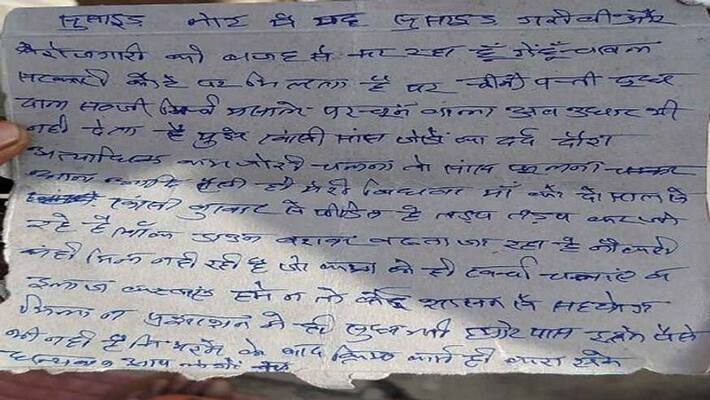 सुसाइड नोट में यह सुसाइड गरीबी और
बेरोजगारी की वजह से कर रहा हूँ गेहूँ चावल
सरकारी कोटे पर मिलता है पर चीनी पत्ती दूध
दाल सब्जी मिर्च मसाले परचून वाला अब उधार भी
नही देता है मुझे खांसी सांस जोड़ों का दर्द दौरा
अत्याधिक कमजोरी चलना तो सांस फूलना चक्कर
आना आदि मेरी विधवा माँ भी दो साल से
खांसी बुखार से पीड़ित है तड़प तड़प कर जी
रहे है लॉक डाउन बराबर बढता जा रहा है नौकरी
कहीं मिल नही रही है जो काम करे ही खर्चा चलाए व
इलाज कराए हमें न तो कोई शासन से सहयोग
मिला न प्रशासन ने ही सुध ली हमारे पास इतने पैसे
भी नही है कि मरने के बाद क्रिया कर्म ही करा सके